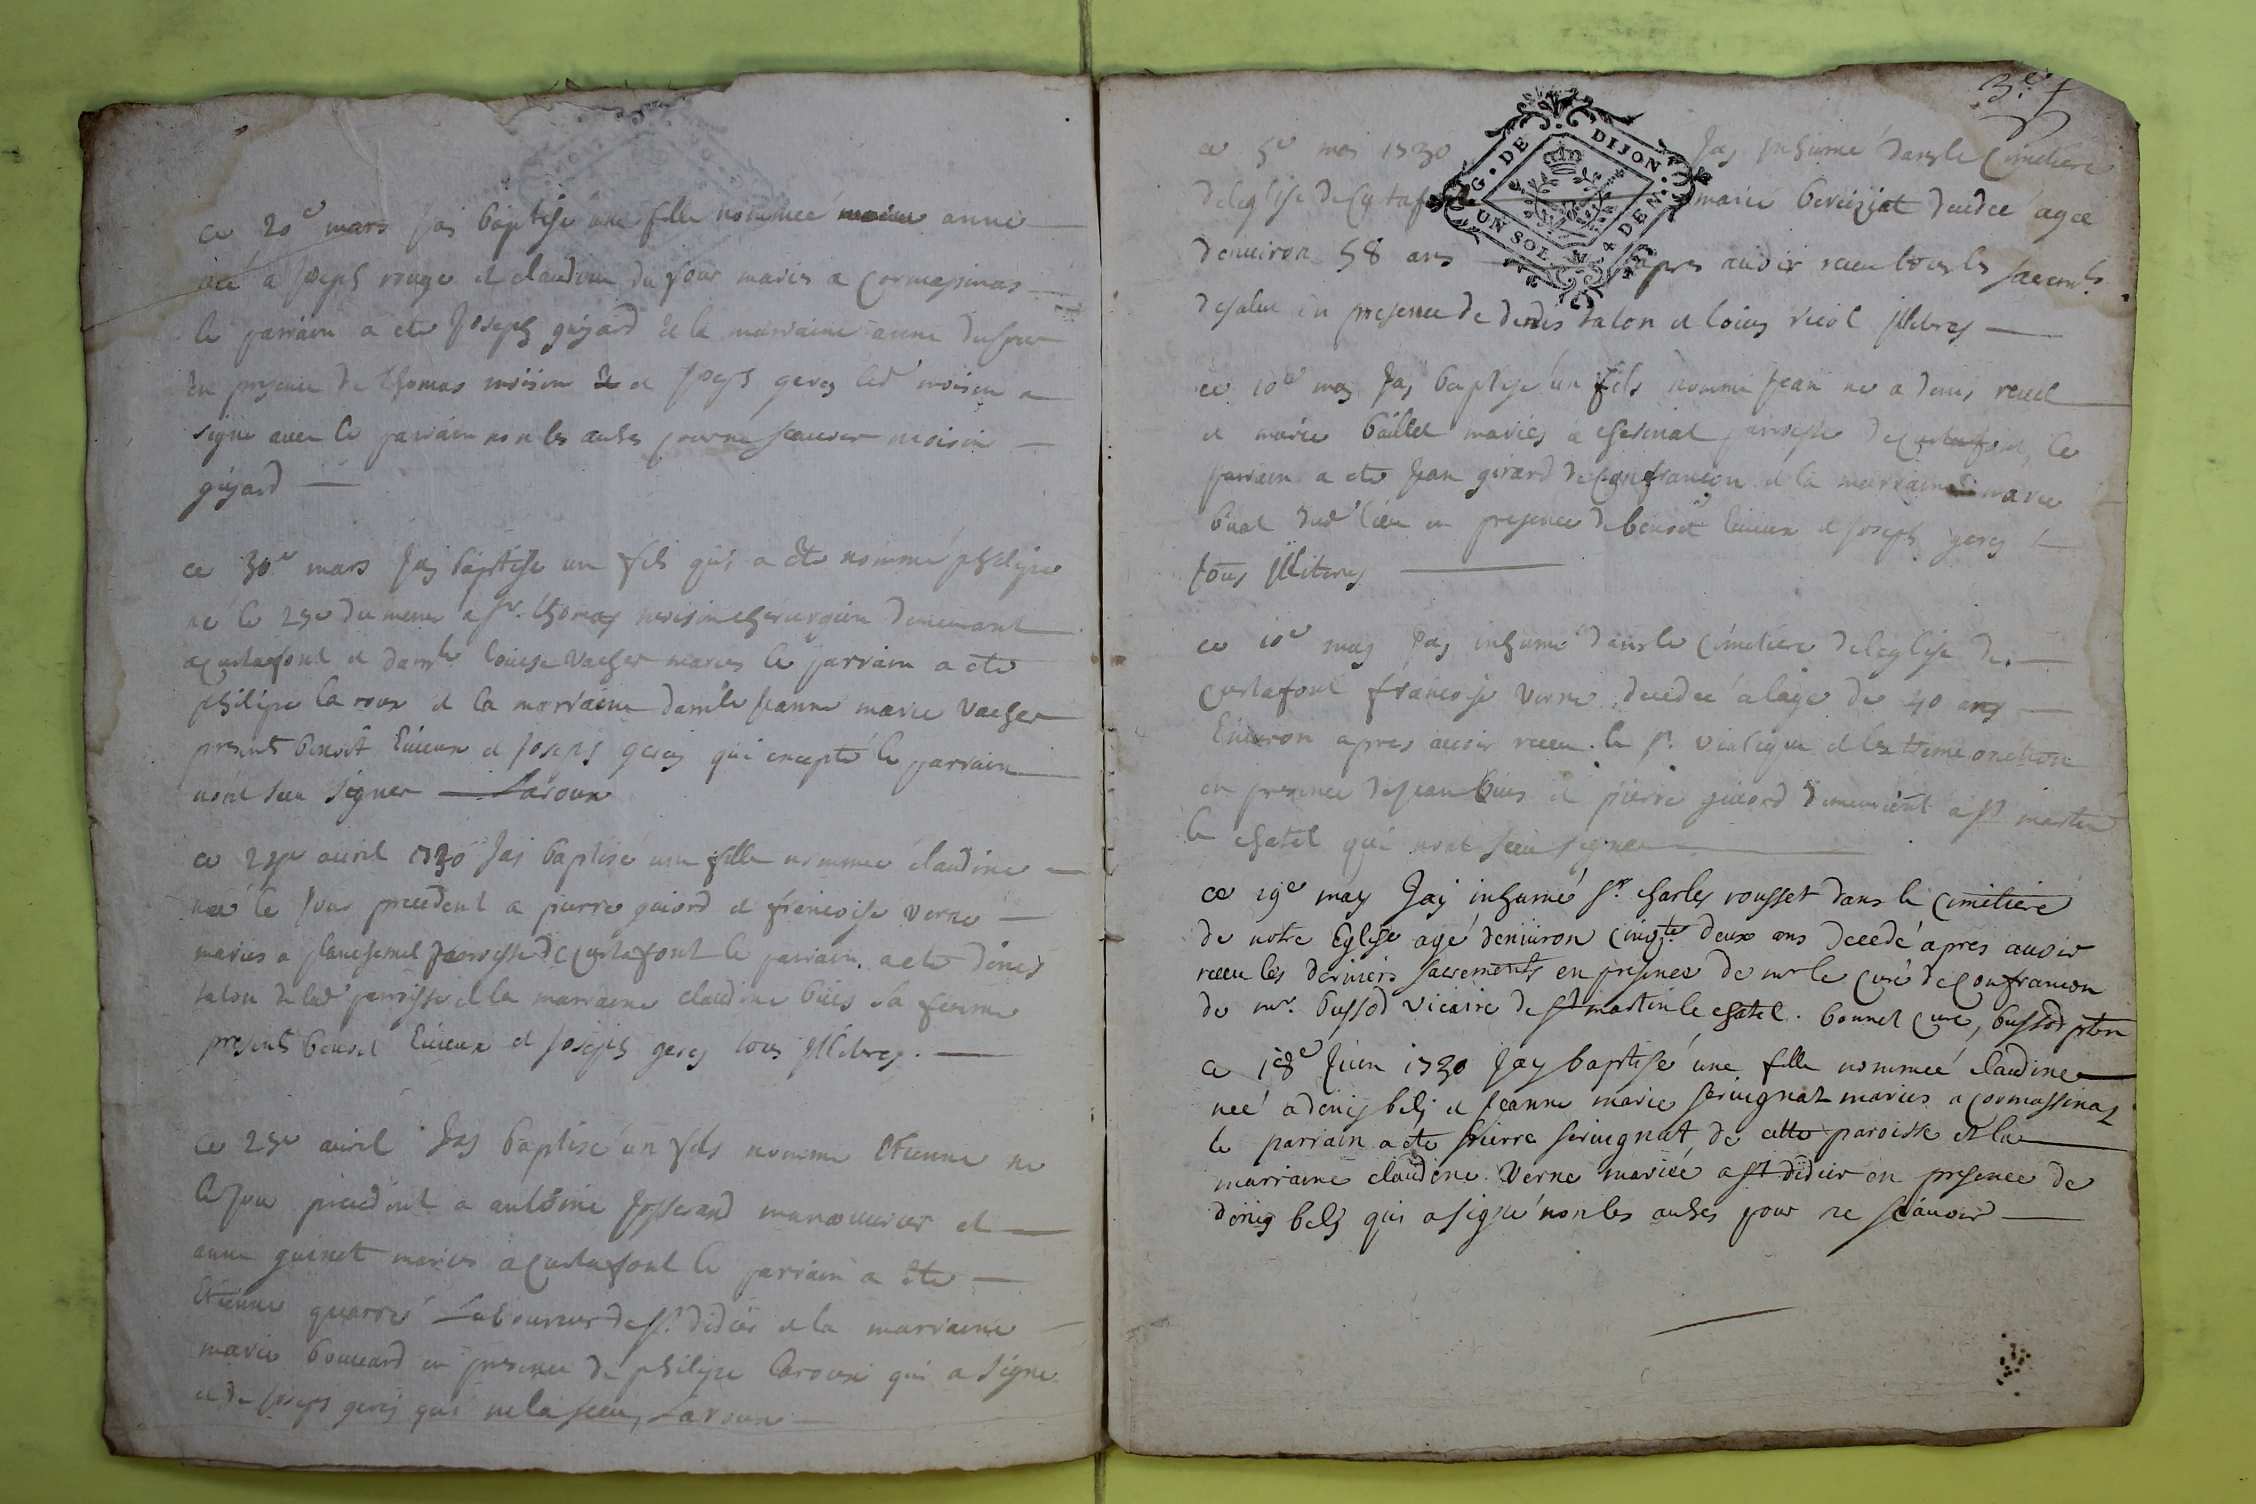 ce 20e mars jai baptisé une fille nommee anne
née a joseph rouge et claudine du four mariés a cormassinas
le parrain a ete Joseph guyard et la marraine anne dufour
en presence de thomas moisin et joseph gerey led moisin a
signé avec le parrain non les autres pour ne scavoir moisin
guyard
ce 30e mars jay baptisé un fils qui a ete nommé philipe
né le 29e du meme a sr. thomas moisin chirurgien demeurant
a curtafont et damle louise vacher mariés le parrain a ete
philipe laroux et la marraine damlle jeanne marie vacher
presents benoit luieux et joseph gerey qui excepté le parrain
nont sceu signer Laroux
ce avril 1730 jai baptisé une fille nommée claudine
née le jour precedent a pierre guiord et francoise verne
mariés a planchemel parroisse de curtafont le parrain a ete denis
talon de lad parroisse et la marraine claudine buis sa femme
presents benoit luieux et joseph gerey tous illitres.
ce avril jay baptisé un fils nommé Etienne né
le jour precedent a antoine josserand manoeuvrier et
anne guinet mariés a curtafont le parrain a ete
Etienne quarré Laboureur de st. didier et la marraine
marie bouvard en presence de philipe laroux qui a signé
et de joseph gerey qui ne la sceu, Laroux
3.e
G. DE DIJON. UN SOL. 4 DEN.
ce 5e mai 1730 Jay inhumé dans le cimetiere
de leglise de Curtafont marie decedee agee
denviron 58 ans apres avoir receu tous les sacemts
de salut en presence de denis talon et louis viot illitres
ce 10e may Jay baptisé un fils nommé jean né a denis
et marie baillet mariés a chesinat parroisse de curtafont, le
parrain a ete jean girard de confrancon et la marraine marie
dud lieu en presence de benoit luieux et joseph gerey
tous illitres
ce 10e may Jay inhumé dans le cimetiere de leglise de
curtafont françoise verne decedée a lage de 40 ans
Environ apres avoir receu le st. viatique et lextreme onction
en presence de jean buis et pierre guiord demeurant a st martin
le chatel qui nont sceu signer
ce 19e may Jay inhumé sr. charles rousset dans le cimetiere
de notre Eglise agé denviron cinqte. deux ans decedé apres avoir
receu les derniers sacrements en presence de mr le curé de confrancon
de mr. bussod vicaire de st martin le chatel. bonnet curé, bussod ptre
ce 18e Juin 1730 Jay baptisé une fille nommée claudine
née a denis bely et jeanne marie servignat mariés a cormassinas
le parrain a ete pierre servignat de cette paroisse et la
marraine claudine verne mariée a st didier en presence de
denis bely qui a signé non les autres pour ne scavoir